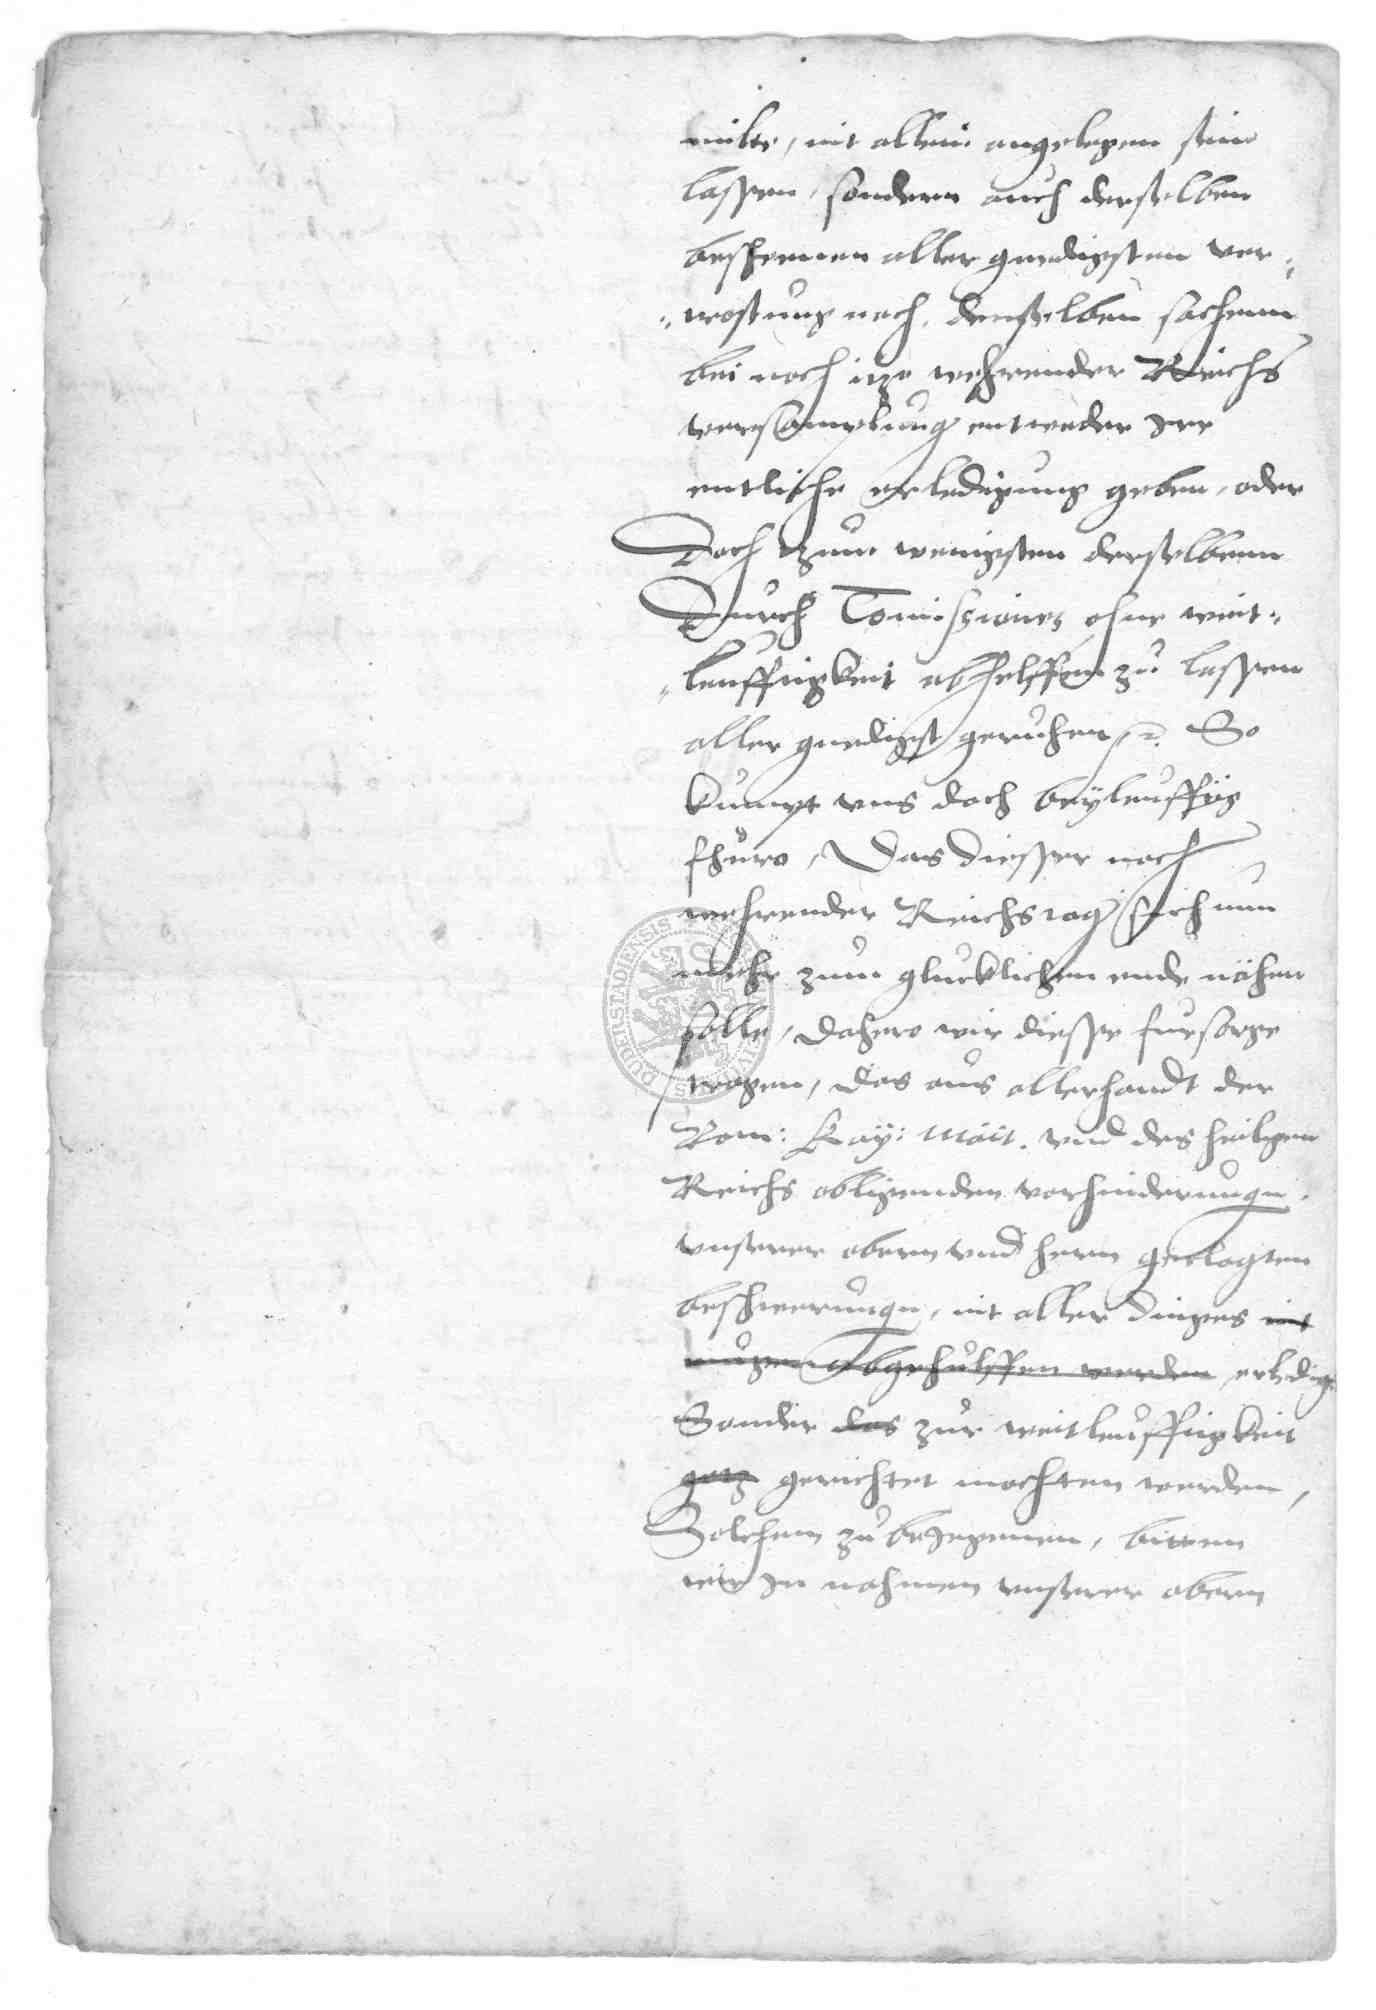 milte, nit allein angelegen sein
lassen, sondern auch derselben
beschehenen aller gnedigsten ver¬
trostung nach, denselben sachenn
bei noch itzo wehrender Reichs
versamplung entweder Ire
entliche erledigung geben, oder
Doch zum wenigsten derselbenn
Durch Comissiones ohne weit¬
leuffigkeit abhelffen zu lassen
aller gnedigst geruhen, So
kumpt uns doch beyleuffig
fhuro, Das diesser noch
wehrender Reichstag sich nun
mehr zum glucklichen ende nähen
solle, Dahero wir diesse fursorge
tragen, das aus allerhandt der
Rom: Kay: Mait. und des heiligen
Reichs obligenden vorhinderungen,
unserer obern und hern geclagten
beschwerungen, nit aller dinges nit
mugen abgehulffen werden erledigt
Sonder das zur weitleuffigkeit
gerichtet mochten werden,
Solchem zu bejegenen, bitten
wir In nahmen unserer obern
DUDERSTADIENSIS